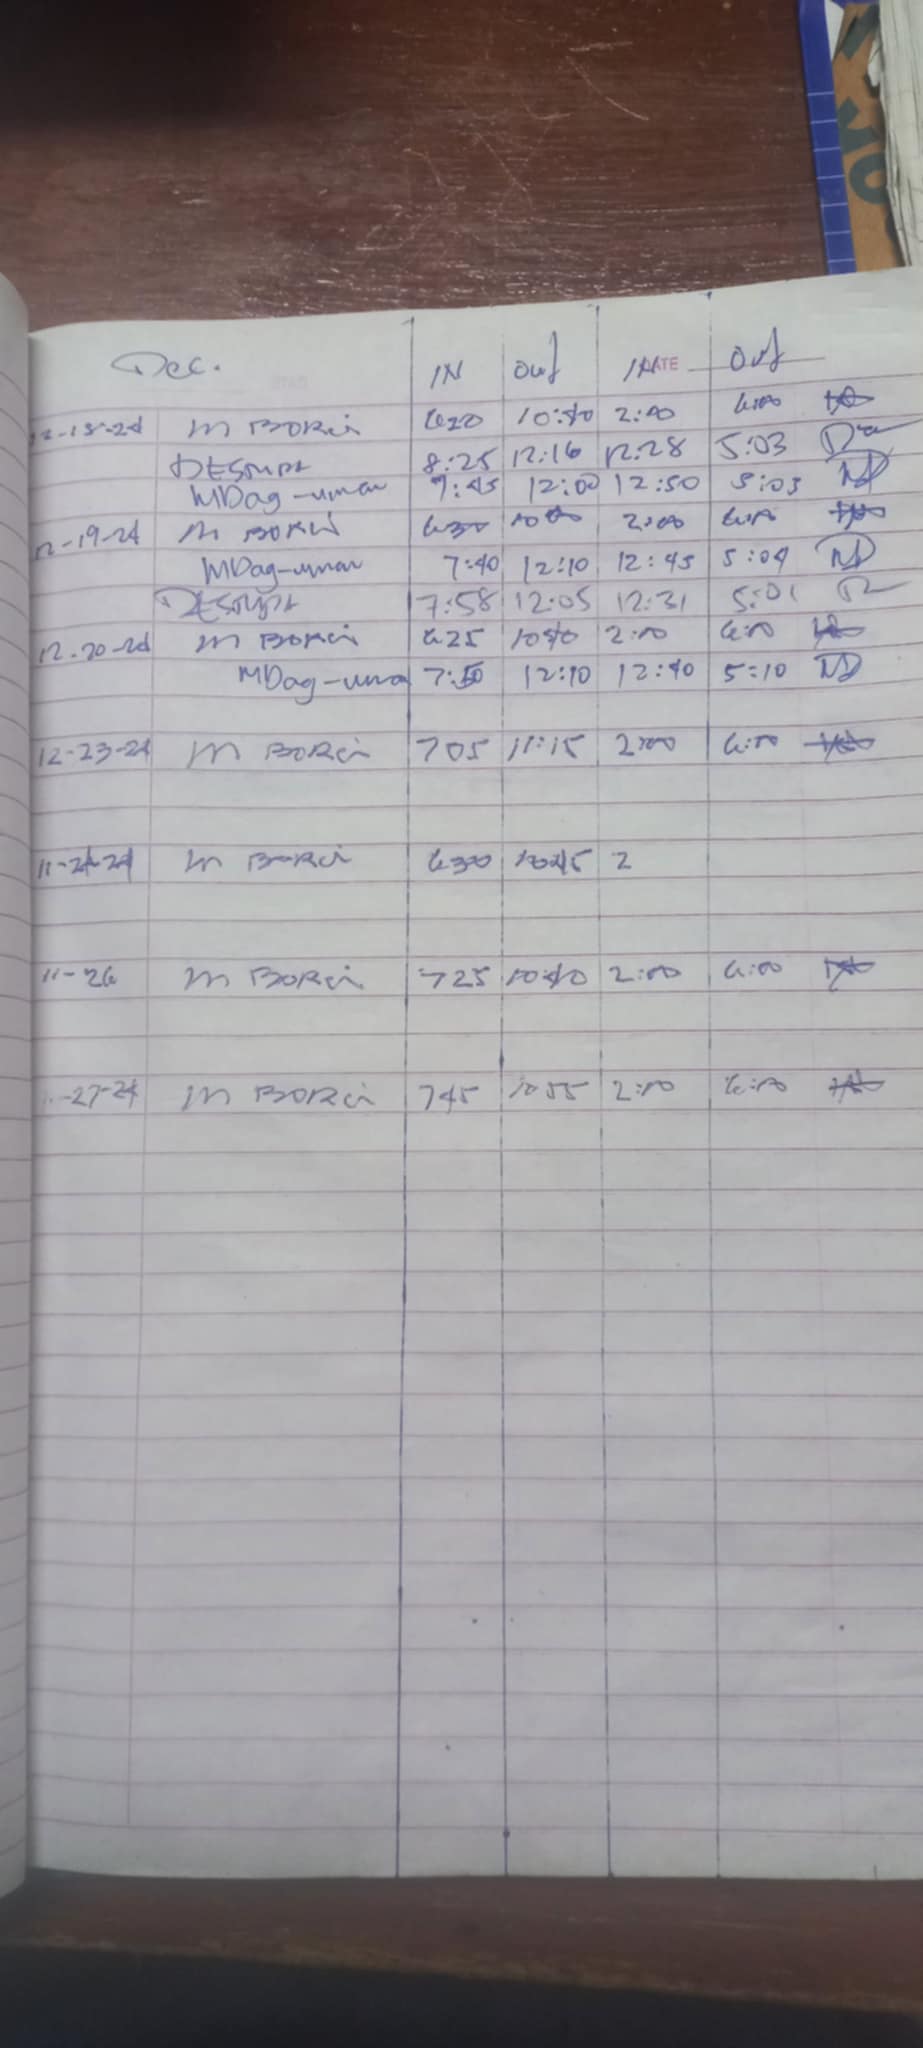 Dec. IN Out IN DATE Out
M Borci 6:20 10:40 2:00 6:00
8:25 12:16 12:28 5:03
MDag-uman 7:45 12:00 12:50 5:03
12-19-24 M Borci 630 10:00 2:00 6:00
MDag-uman 7:40 12:10 12:45 5:04
7:58 12:05 12:31 5:01
12-20-24 M Borci 625 1040 2:00 6:00
MDag-uma 7:50 12:10 12:40 5:10
12-23-24 M Borci 705 11:15 2:00 6:00
11-24-24 M Borci 630 1045 2
11-26 M Borci 725 10:40 2:00 6:00
-27-24 M Borci 745 1055 2:00 6:00